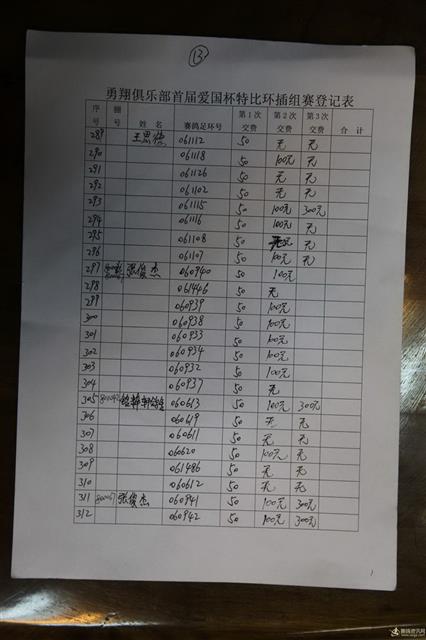 ⑬
勇翔俱乐部首届爱国杯特比环插组赛登记表
序号 棚号 姓名 赛鸽足环号 第1次交费 第2次交费 第3次交费 合计
289 王思俊 061112 50 无 无
290 061118 50 100元 无
291 061126 50 无 无
292 061102 50 无 无
293 061115 50 100元 300元
294 061116 50 100元 无
295 061108 50 无
296 061107 50 100元 无
297 张俊杰 060940 50 100元
298 061446 50 无
299 060939 50 100元
300 060938 50 100元
301 060933 50 100元
302 060934 50 100元
303 060932 50 100元
304 060937 50 无
305 060613 50 100元 300元
306 060619 50 无 无
307 060611 50 无 无
308 060620 50 100元 无
309 061486 50 无 无
310 060612 50 无 无
311 张俊杰 060941 50 100元 300元
312 060942 50 100元 300元
1